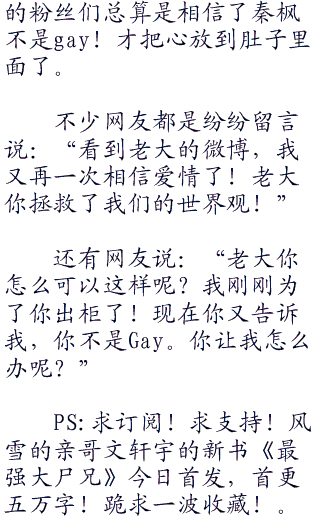 的粉丝们总算是相信了秦枫
不是gay！才把心放到肚子里
面了。
不少网友都是纷纷留言
说：“看到老大的微博，我
又再一次相信爱情了！老大
你拯救了我们的世界观！”
还有网友说：“老大你
怎么可以这样呢？我刚刚为
了你出柜了！现在你又告诉
我，你不是Gay。你让我怎么
办呢？”
PS:求订阅！求支持！风
雪的亲哥文轩宇的新书《最
强大尸兄》今日首发，首更
五万字！跪求一波收藏！。